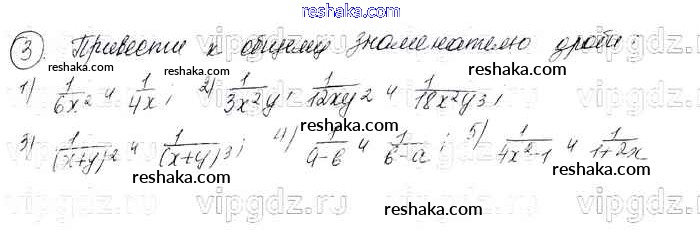 reshaka.com
③. Привести к общему знаменателю дроби:
reshaka.com reshaka.com reshaka.com
1) 1/6x² и 1/4x; 2) 1/3x²y, 1/12xy² и 1/18x²y³;
3) 1/(x+y)² и 1/(x+y)³; 4) 1/a-b и 1/b-a; 5) 1/4x²-1 и 1/1+2x
reshaka.com reshaka.com reshaka.com
vipgdz.com vipgdz.com vipgdz.com